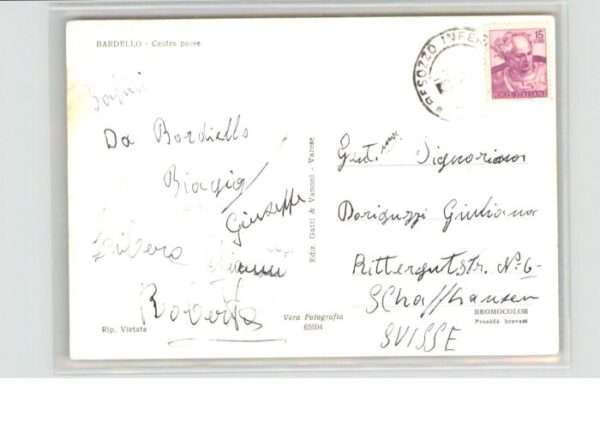 BARDELLO - Centro paese
Da Bardiello
Biagio
Giuseppe
Libero Gianni
Roberto
Rip. Vietata
Vera Fotografia
65104
Ediz. Gatti & Vanoni - Varese
BESOZZO INFER
15
POSTE ITALIANE
Gent.ma Signorina
Doriguzzi Giuliana
Rittergutstr. No 6
SCHaffhausen
SUISSE
BROMOCOLOR